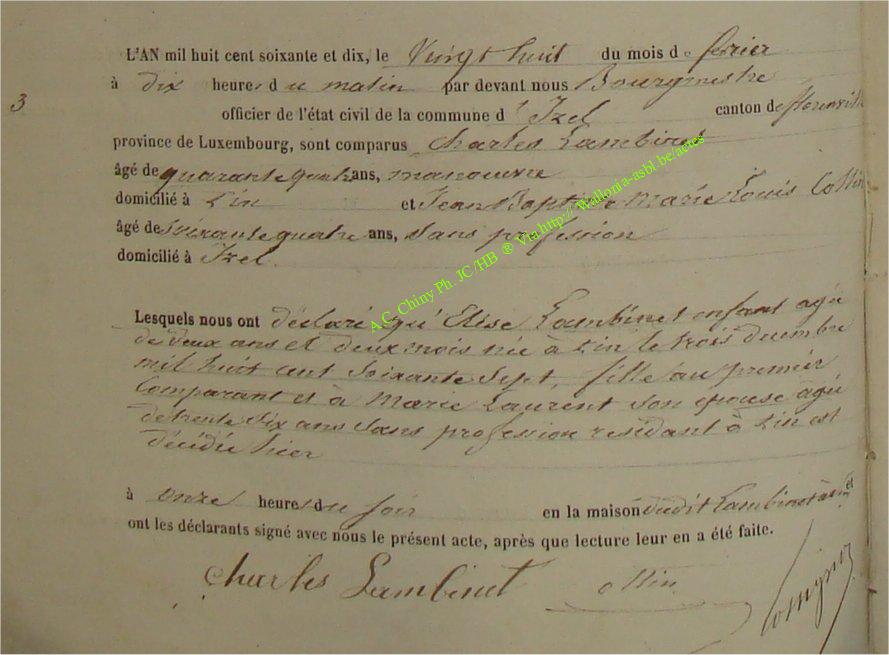 L'AN mil huit cent soixante et dix, le Vingt huit du mois de fevrier
à dix heures du matin par devant nous Bourgmestre
3
officier de l'état civil de la commune d'Izel canton de florenville
province de Luxembourg, sont comparus Charles Lambinet
âgé de quarante quatre ans, manoeuvre
domicilié à Pin et Jean Baptiste Marie Louis Collin
âgé de soixante quatre ans, sans profession
domicilié à Izel.
A.C. Chiny Ph. JC /HB ® Via http:// Wallonia-asbl.be/actes
Lesquels nous ont déclaré qu'Elise Lambinet enfant agée
de deux ans et deux mois née à Pin le trois decembre
mil huit cent soixante sept, fille au premier
Comparant et à Marie Laurent son epouse agée
de trente six ans sans profession residant à Pin est
décédée hier
à onze heures du soir en la maison dudit Lambinet à Pin et
ont les déclarants signé avec nous le présent acte, après que lecture leur en a été faite.
Charles Lambinet Collin